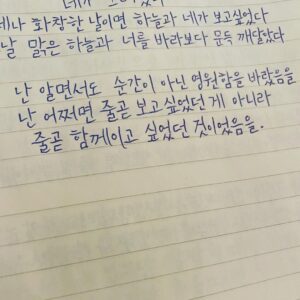 세나 화창한 날이면 하늘과 네가 보고싶었다
날 맑은 하늘과 너를 바라보다 문득 깨달았다
난 알면서도 순간이 아닌 영원함을 바랐음을
난 어쩌면 줄곧 보고싶었던 게 아니라
줄곧 함께이고 싶었던 것이었음을.